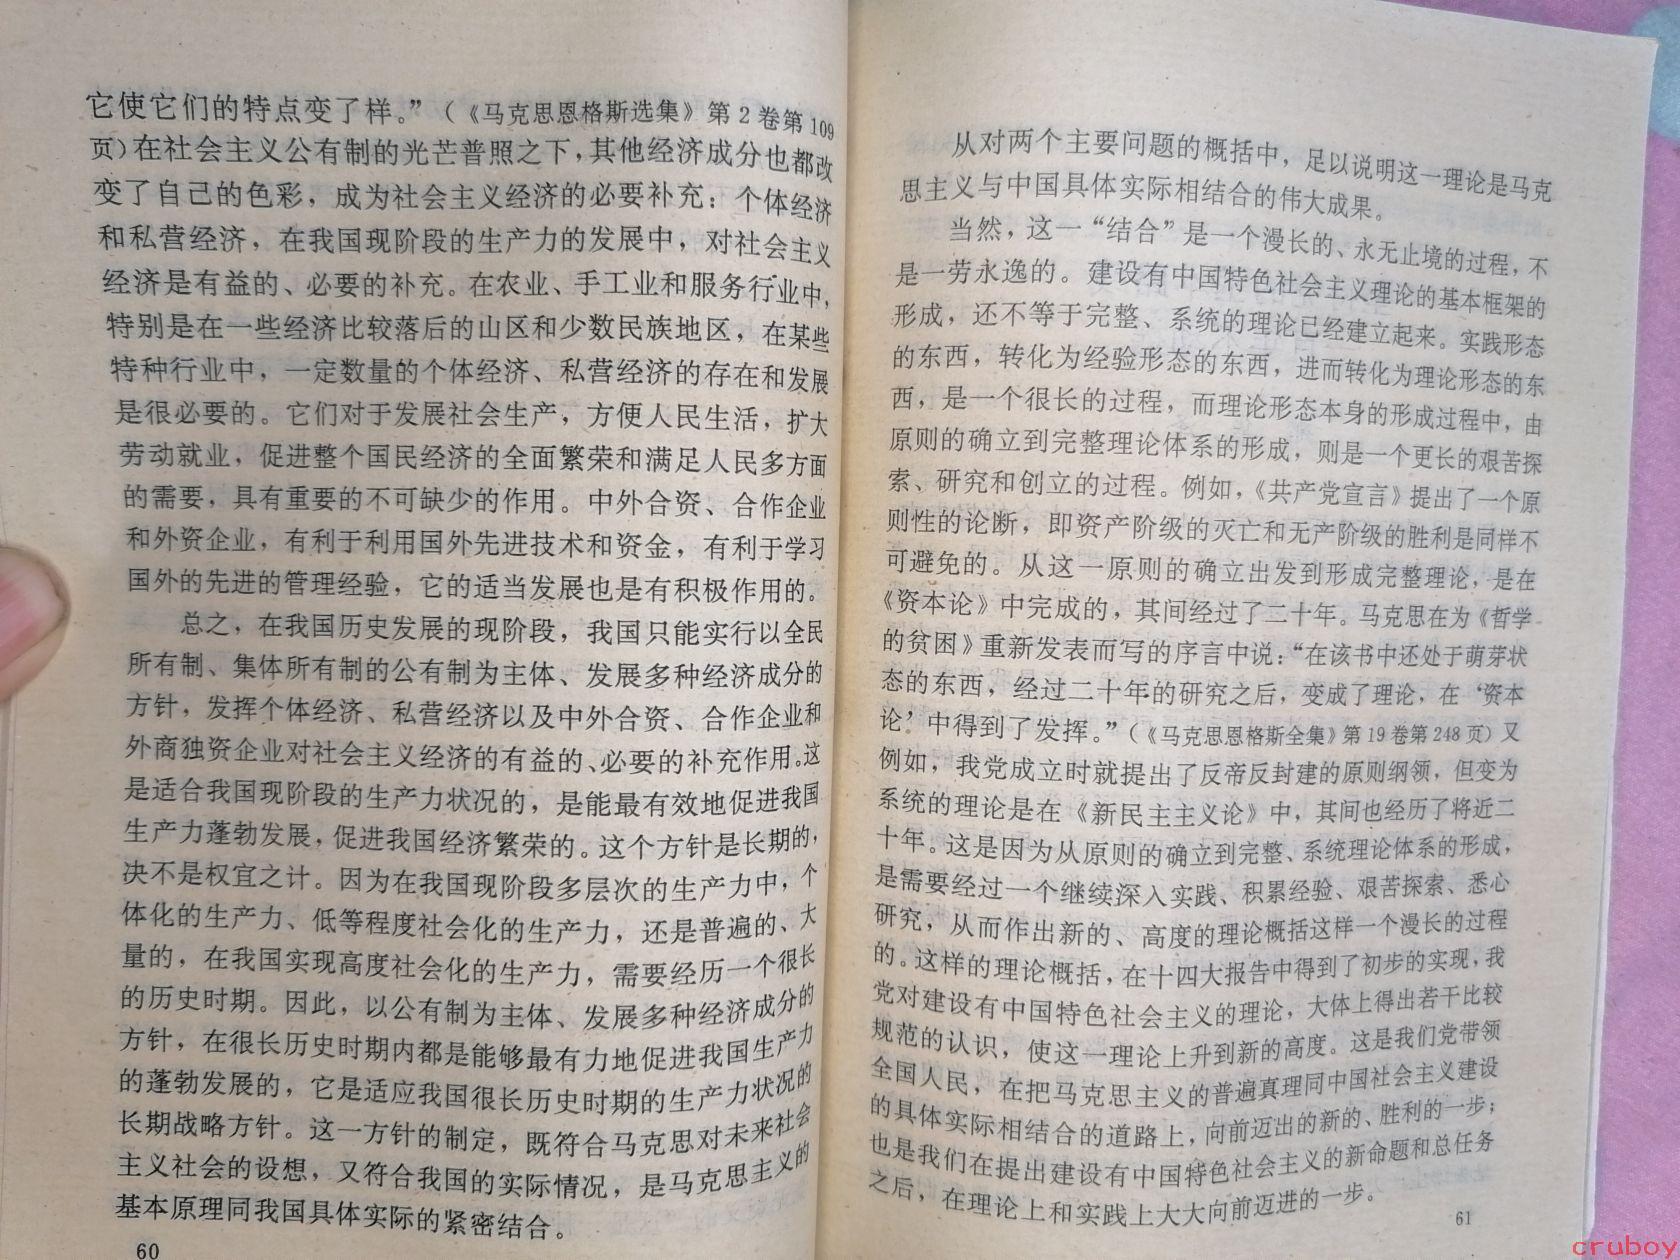 它使它们的特点变了样。”（《马克思恩格斯选集》第2卷第109
页）在社会主义公有制的光芒普照之下，其他经济成分也都改
变了自己的色彩，成为社会主义经济的必要补充：个体经济
和私营经济，在我国现阶段的生产力的发展中，对社会主义
经济是有益的、必要的补充。在农业、手工业和服务行业中，
特别是在一些经济比较落后的山区和少数民族地区，在某些
特种行业中，一定数量的个体经济、私营经济的存在和发展
是很必要的。它们对于发展社会生产，方便人民生活，扩大
劳动就业，促进整个国民经济的全面繁荣和满足人民多方面
的需要，具有重要的不可缺少的作用。中外合资、合作企业
和外资企业，有利于利用国外先进技术和资金，有利于学习
国外的先进的管理经验，它的适当发展也是有积极作用的。
总之，在我国历史发展的现阶段，我国只能实行以全民
所有制、集体所有制的公有制为主体、发展多种经济成分的
方针，发挥个体经济、私营经济以及中外合资、合作企业和
外商独资企业对社会主义经济的有益的、必要的补充作用。这
是适合我国现阶段的生产力状况的，是能最有效地促进我国
生产力蓬勃发展，促进我国经济繁荣的。这个方针是长期的，
决不是权宜之计。因为在我国现阶段多层次的生产力中，个
体化的生产力、低等程度社会化的生产力，还是普遍的、大
量的，在我国实现高度社会化的生产力，需要经历一个很长
的历史时期。因此，以公有制为主体、发展多种经济成分的
方针，在很长历史时期内都是能够最有力地促进我国生产力
的蓬勃发展的，它是适应我国很长历史时期的生产力状况的
长期战略方针。这一方针的制定，既符合马克思对未来社会
主义社会的设想，又符合我国的实际情况，是马克思主义的
基本原理同我国具体实际的紧密结合。
60
从对两个主要问题的概括中，足以说明这一理论是马克
思主义与中国具体实际相结合的伟大成果。
当然，这一“结合”是一个漫长的、永无止境的过程，不
是一劳永逸的。建设有中国特色社会主义理论的基本框架的
形成，还不等于完整、系统的理论已经建立起来。实践形态
的东西，转化为经验形态的东西，进而转化为理论形态的东
西，是一个很长的过程，而理论形态本身的形成过程中，由
原则的确立到完整理论体系的形成，则是一个更长的艰苦探
索、研究和创立的过程。例如，《共产党宣言》提出了一个原
则性的论断，即资产阶级的灭亡和无产阶级的胜利是同样不
可避免的。从这一原则的确立出发到形成完整理论，是在
《资本论》中完成的，其间经过了二十年。马克思在为《哲学
的贫困》重新发表而写的序言中说：“在该书中还处于萌芽状
态的东西，经过二十年的研究之后，变成了理论，在‘资本
论’中得到了发挥。”（《马克思恩格斯全集》第19卷第248页）又
例如，我党成立时就提出了反帝反封建的原则纲领，但变为
系统的理论是在《新民主主义论》中，其间也经历了将近二
十年。这是因为从原则的确立到完整、系统理论体系的形成，
是需要经过一个继续深入实践、积累经验、艰苦探索、悉心
研究，从而作出新的、高度的理论概括这样一个漫长的过程
的。这样的理论概括，在十四大报告中得到了初步的实现，我
党对建设有中国特色社会主义的理论，大体上得出若干比较
规范的认识，使这一理论上升到新的高度。这是我们党带领
全国人民，在把马克思主义的普遍真理同中国社会主义建设
的具体实际相结合的道路上，向前迈出的新的、胜利的一步；
也是我们在提出建设有中国特色社会主义的新命题和总任务
之后，在理论上和实践上大大向前迈进的一步。
61
cruboy